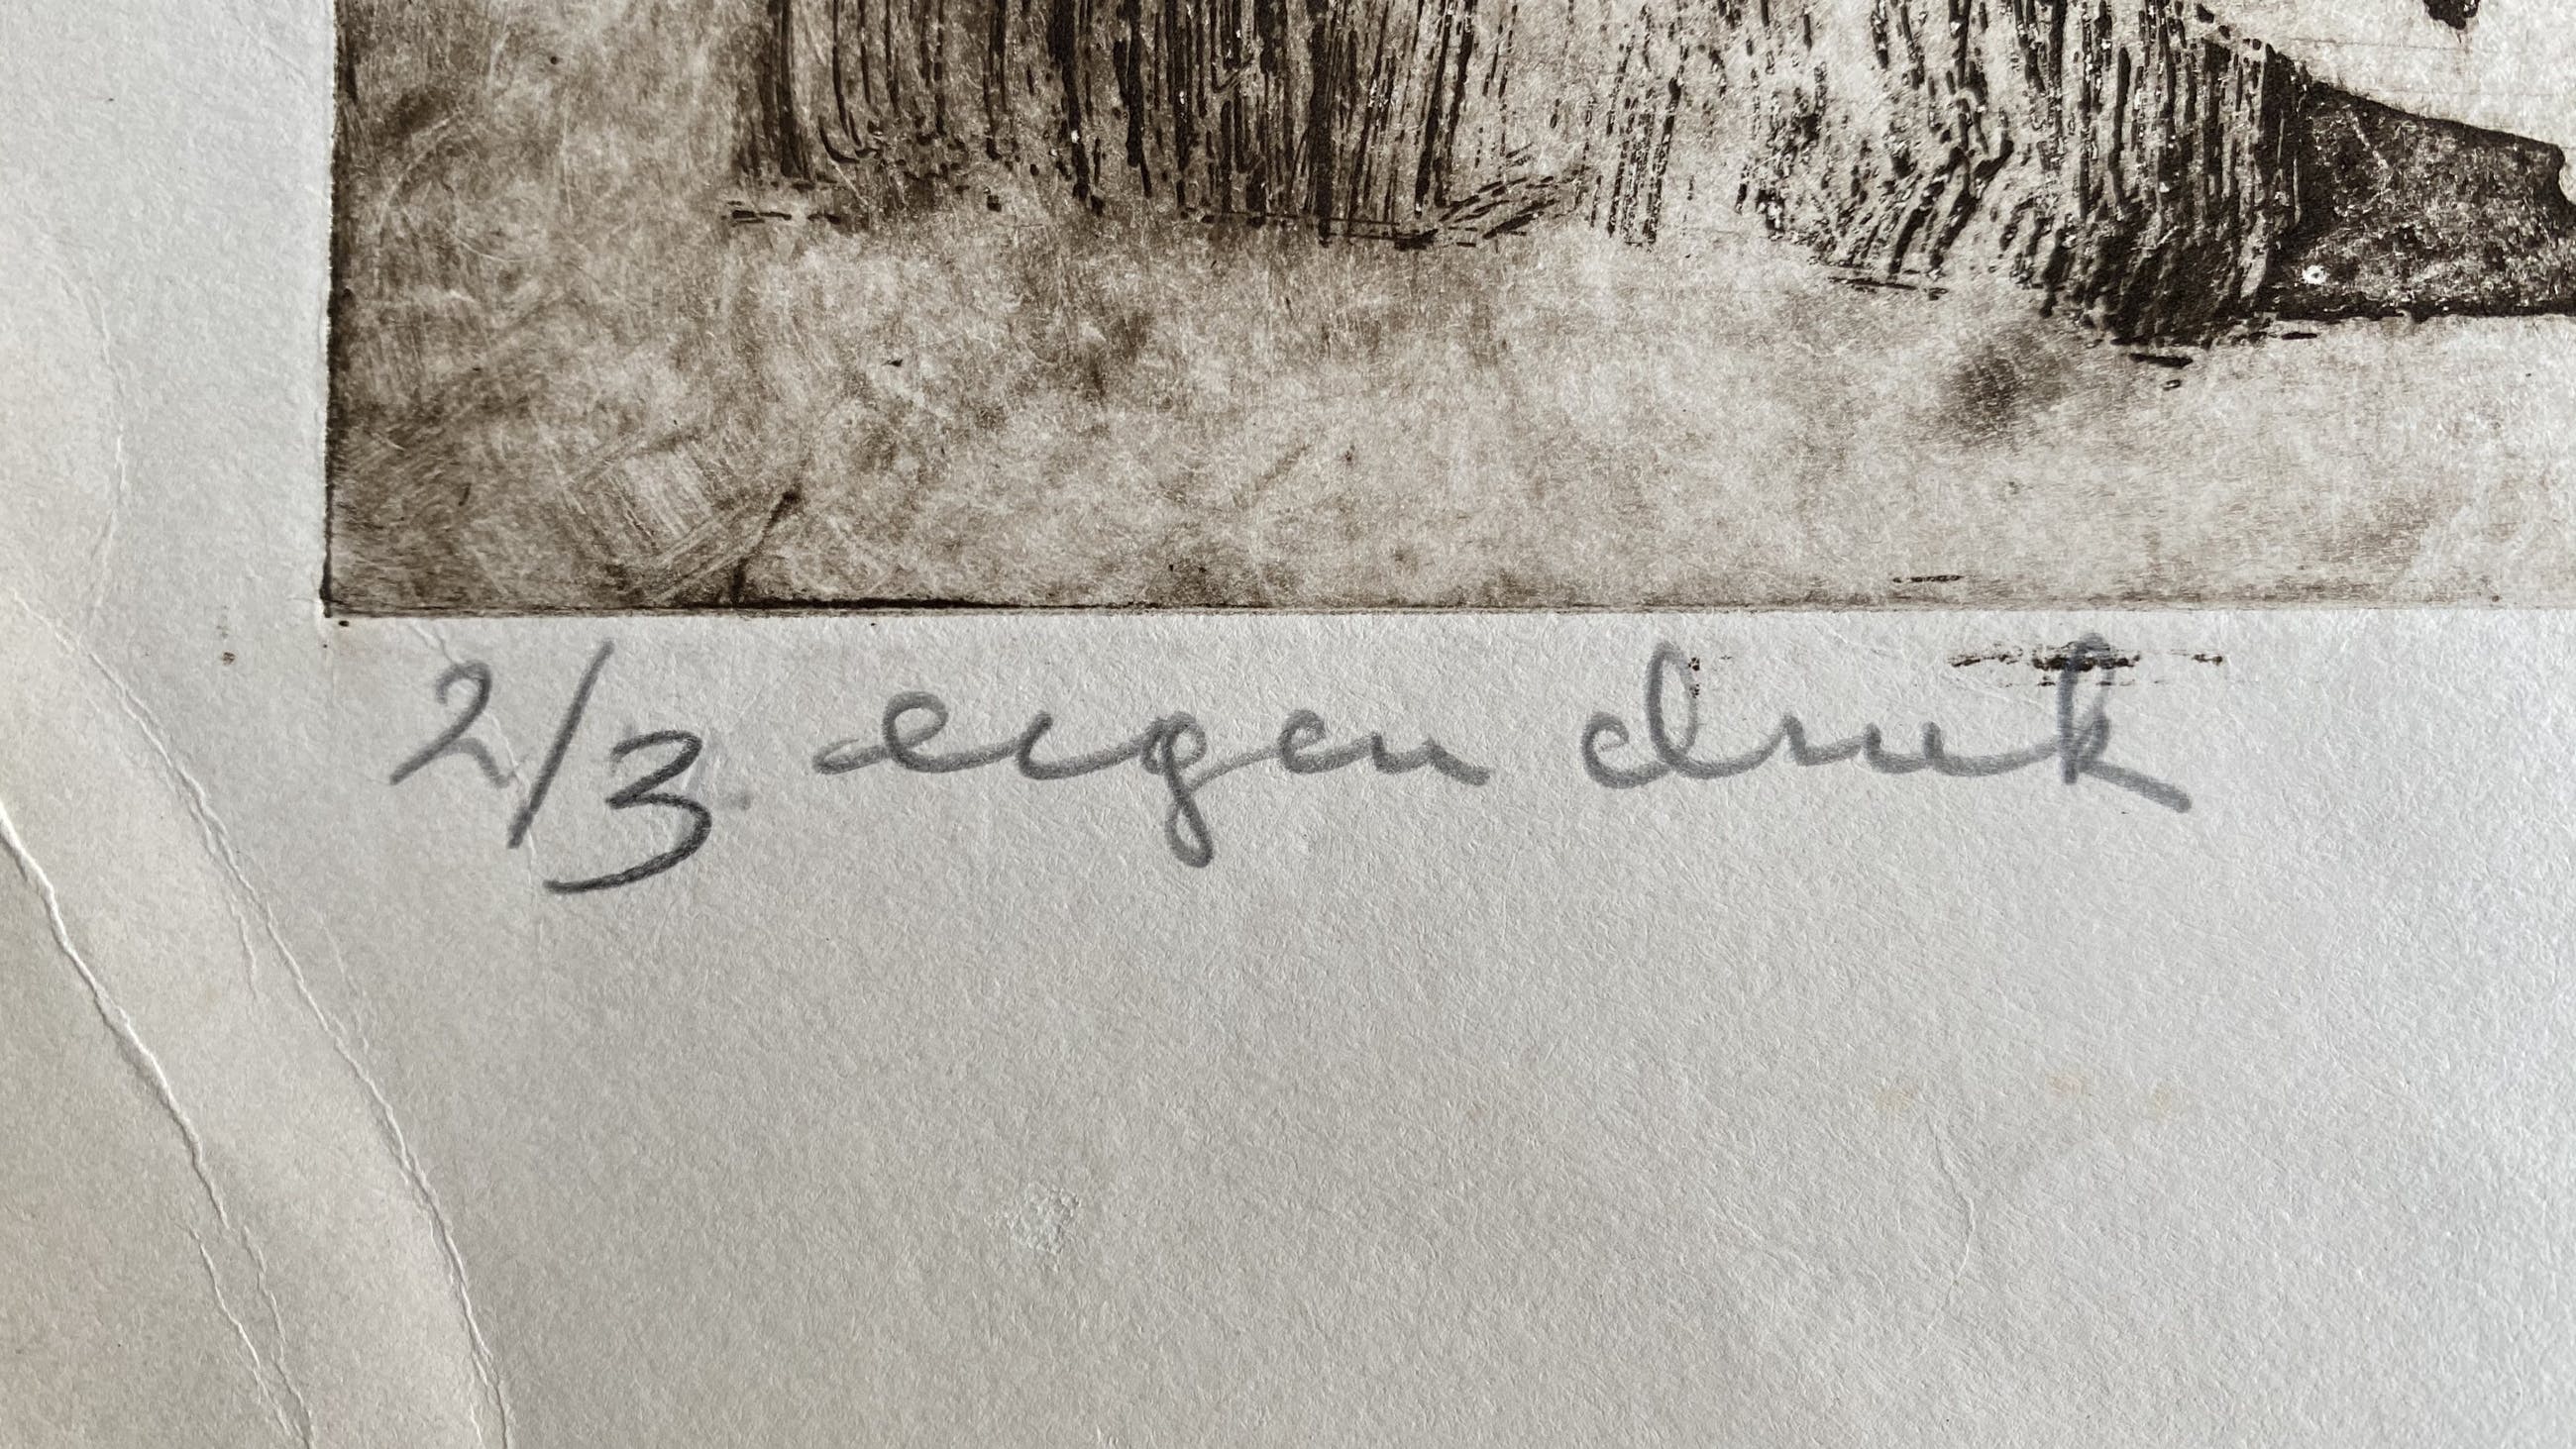 2/3 eigen druk